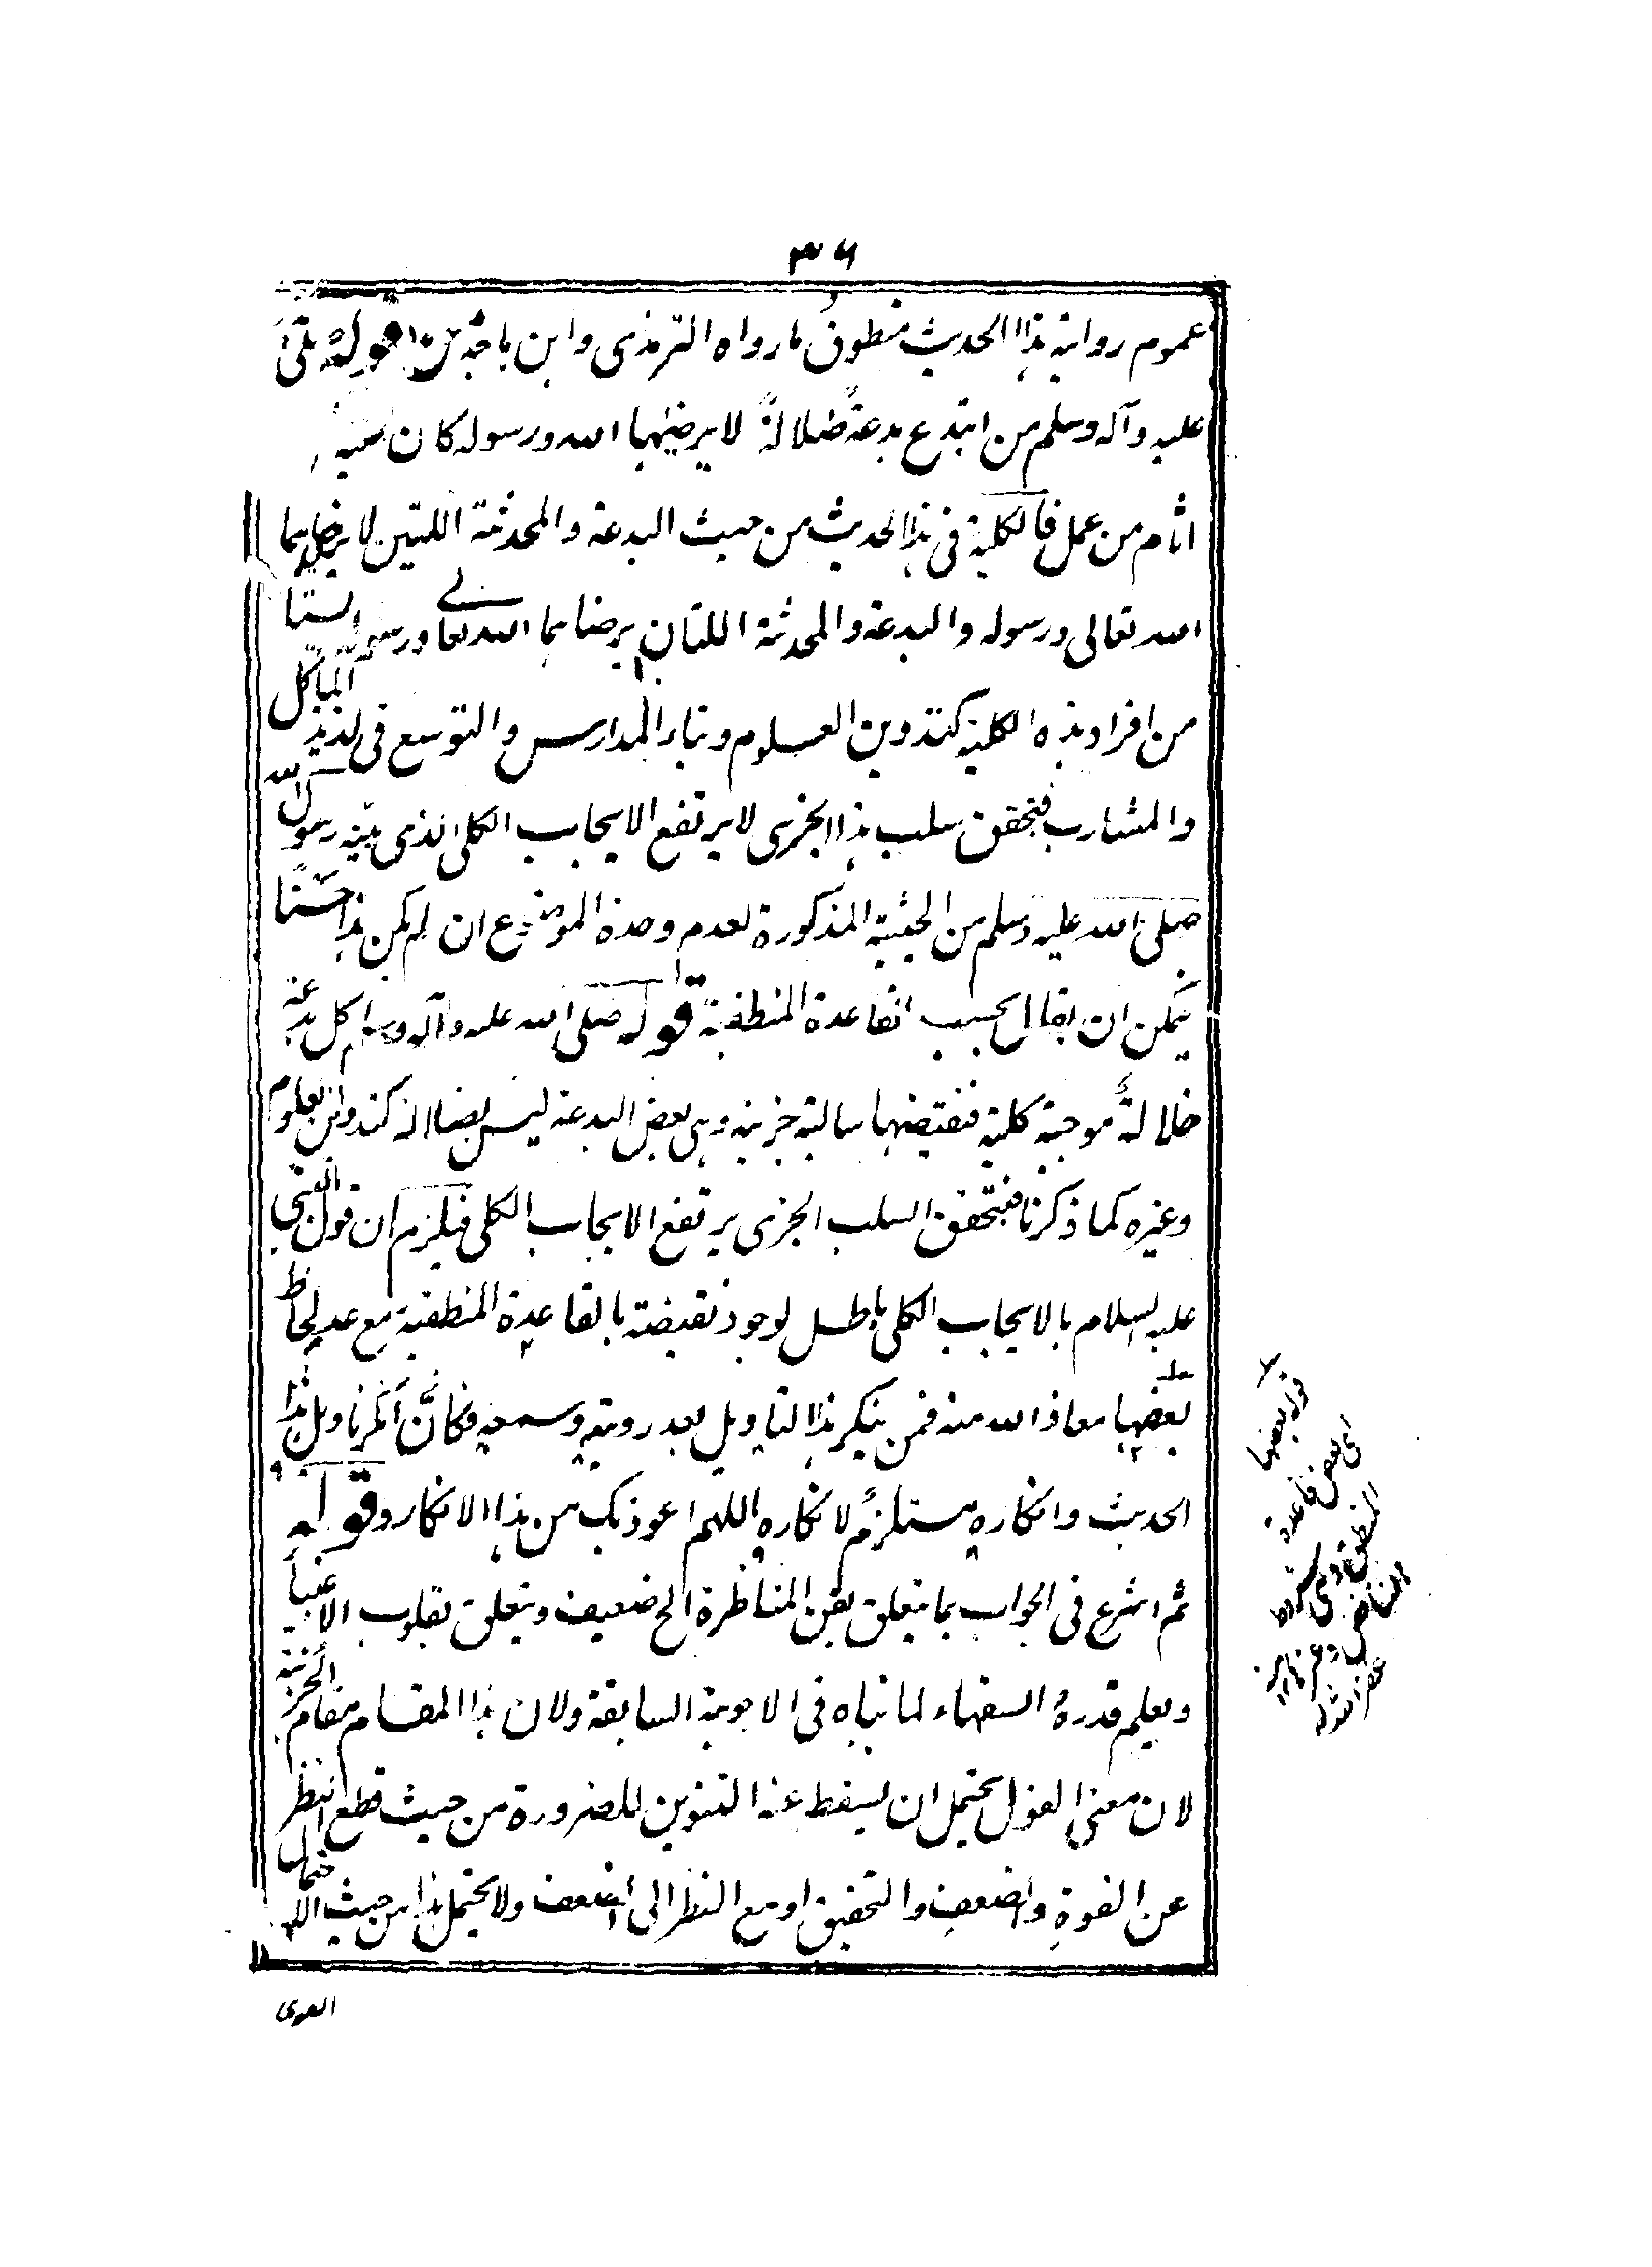 ٣٦
عموم رواية هذا الحديث منطوق ما رواه الترمذى وابن ماجة من قوله صلى
عليه وآله وسلم من ابتدع بدعةً ضلالةً لا يرضيٰها الله ورسوله كان عليه
اثام من عمل فالكلية فى هذا الحديث من حيث البدعة والمحدثة اللتين لا يرضاهما
الله تعالى ورسوله والبدعة والمحدثة اللتان يرضاهما الله تعالے ورسوله ليستا
من افراد هذه الكلية كتدوين العلوم وبناء المدارس والتوسع فى لذيذ المآكل
والمشارب فتحقق سلب هذا الجزى لا يرتفع الايجاب الكلى الذى بينه رسول الله
صلى الله عليه وسلم من الحيثية المذكورة لعدم وحدة الموضوع ان لم يكن هذا حسنًا
يمكن ان يقال بحسب القاعدة المنطقية قوله صلى الله عليه وآله وسلم كل بدعة
ضلالةٌ موجبة كلية فنقيضها سالبة جزئية وهى بعض البدعة ليس بضلالة كتدوين العلوم
وغيره كما ذكرنا فبتحقق السلب الجزى يرتفع الايجاب الكلى فيلزم ان قول النبى
عليه السلام بالايجاب الكلى باطل لوجود نقيضه بالقاعدة المنطقية مع عدم لحاظ
بعضها معاذ الله منه فمن ينكر هذا التاويل بعد رويته وسمعه فكانَّ انكر تاويل هذا
الحديث وانكاره مستلزمٌ لانكاره اللهم اعوذ بك من هذا الانكار وقوله
ثم اشرع فى الجواب بما يتعلق بفن المناظرة الخ ضعيف ويتعلق بقلوب الاغبياء
ويعلم قدره السفهاء لما بيناه فى الاجوبة السابقة ولان هذا المقام مقام الجزئية
لان معنى القول يحتمل ان يسقط عنه التنوين للضرورة من حيث قطع النظر
عن القوة والضعف والتحقيق او مع النظر الى الضعف ولا يحتمل هذا من حيث الاحتمال
القوى
قوله بعضها
اى بعض قاعدة
المنطق وهى شروط
التناقض وغيرها